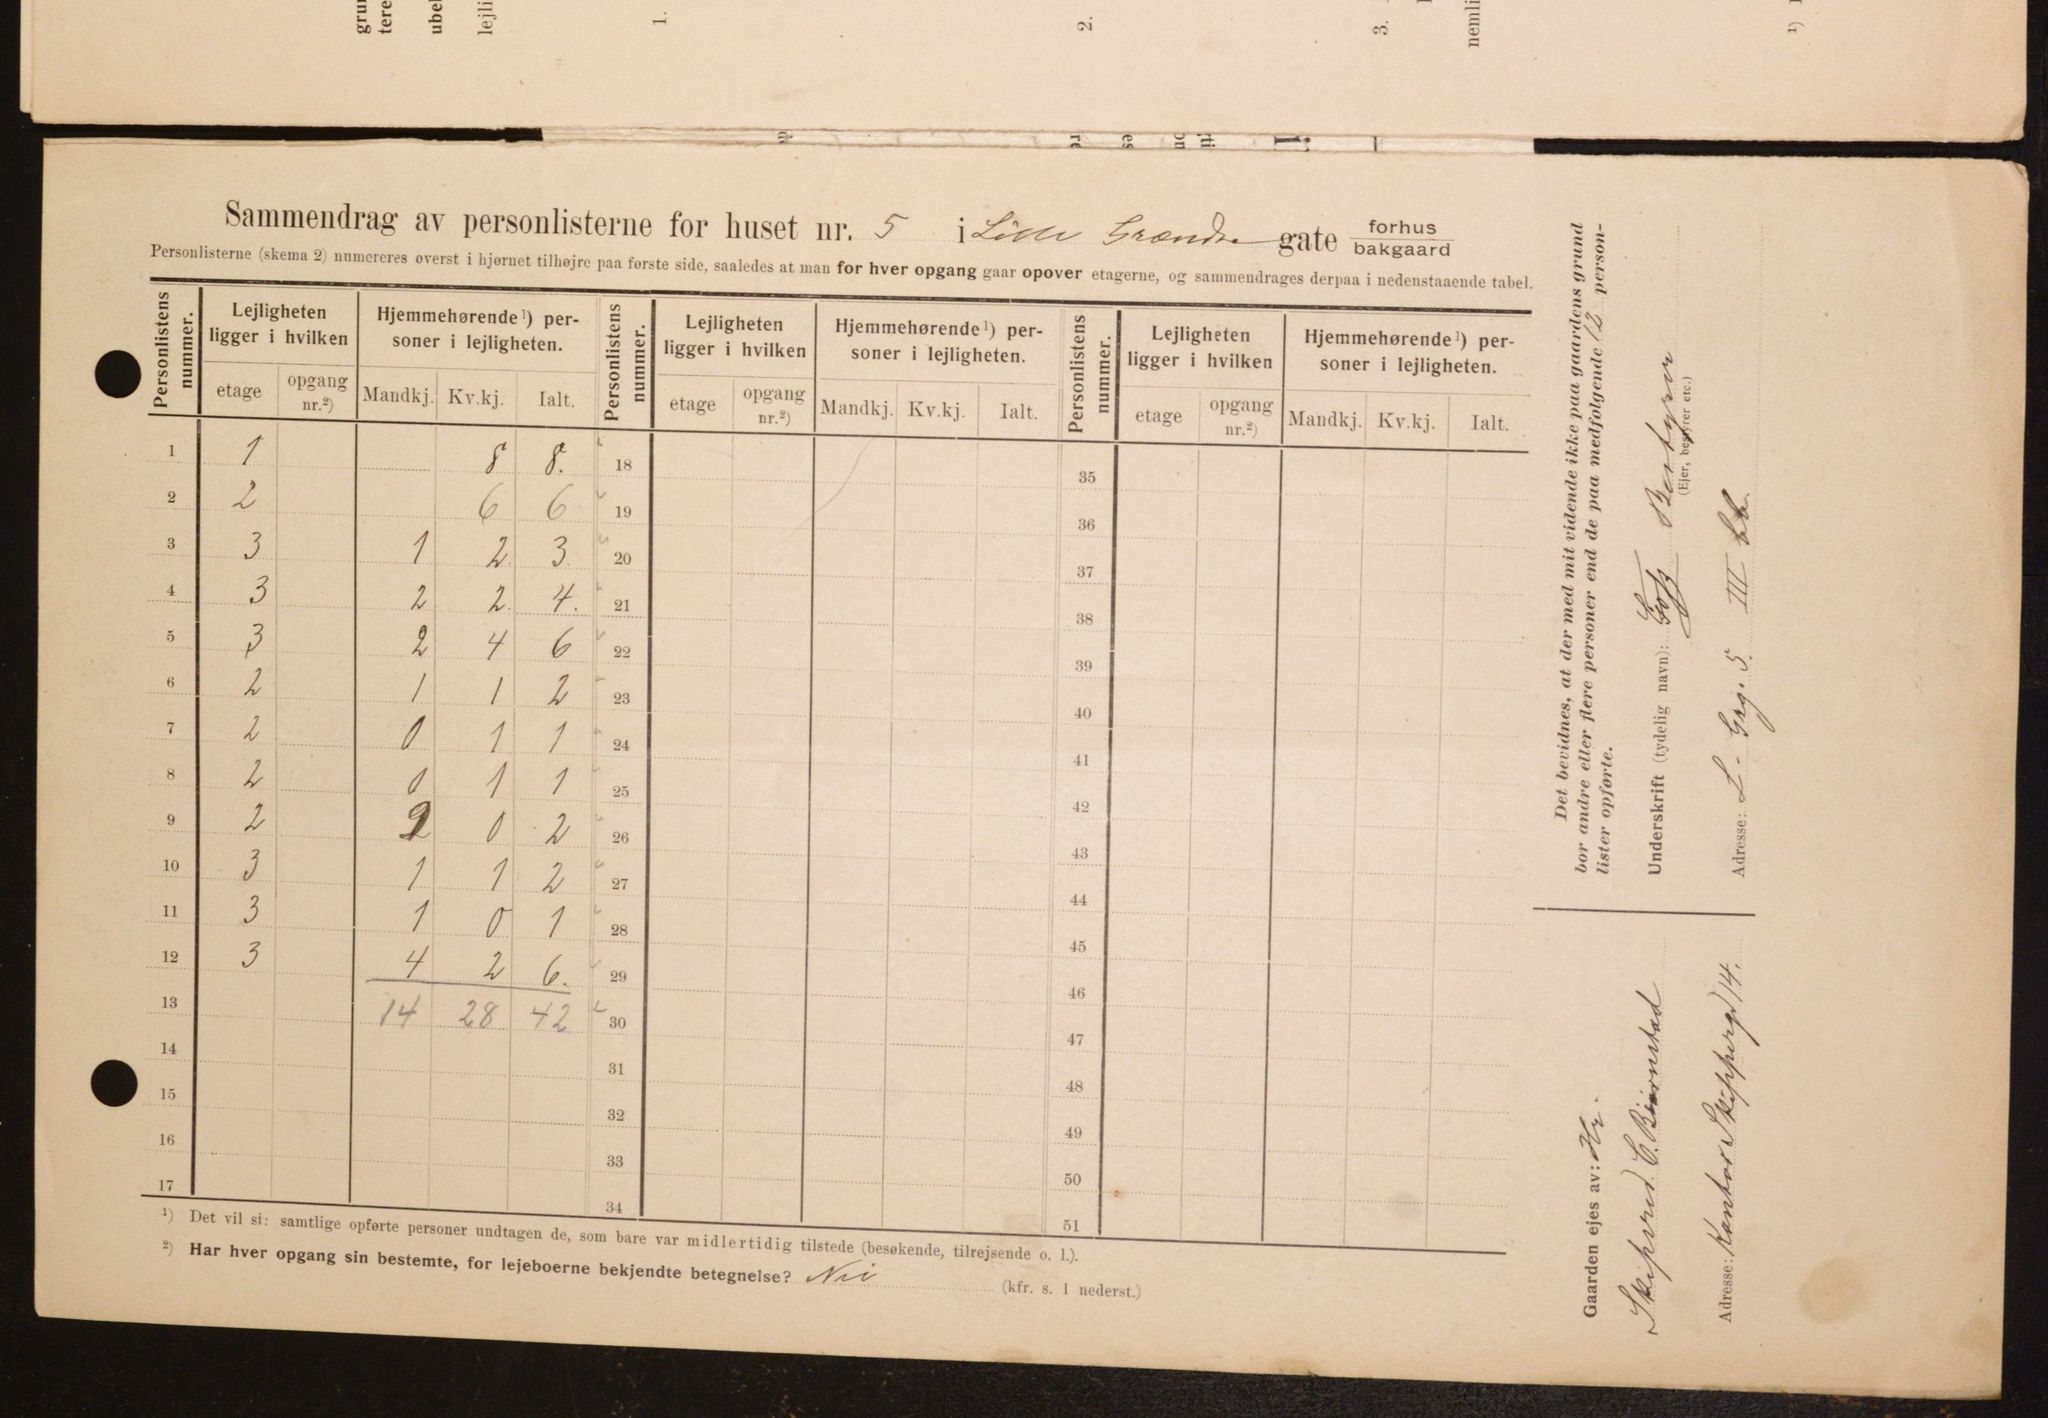 grun
tere
ubel
lejli
1.
2.
3.
nemli
1)
Sammendrag av personlisterne for huset nr. 5 i Lille Grændse gate forhus
bakgaard
Personlisterne (skema 2) numereres øverst i hjørnet tilhøjre paa første side, saaledes at man for hver opgang gaar opover etagerne, og sammendrages derpaa i nedenstaaende tabel.
Personlistens nummer. Lejligheten ligger i hvilken Hjemmehørende ¹) personer i lejligheten. Personlistens nummer. Lejligheten ligger i hvilken Hjemmehørende ¹) personer i lejligheten. Personlistens nummer. Lejligheten ligger i hvilken Hjemmehørende ¹) personer i lejligheten.
etage opgang nr.²) Mandkj. Kv.kj. Ialt. etage opgang nr.²) Mandkj. Kv.kj. Ialt. etage opgang nr.²) Mandkj. Kv.kj. Ialt.
1 1 8 8. 18 35
2 2 6 6 19 36
3 3 1 2 3 20 37
4 3 2 2 4. 21 38
5 3 2 4 6 22 39
6 2 1 1 2 23 40
7 2 0 1 1 24 41
8 2 0 1 1 25 42
9 2 2 0 2 26 43
10 3 1 1 2 27 44
11 3 1 0 1 28 45
12 3 4 2 6. 29 46
13 14 28 42 30 47
14 31 48
15 32 49
16 33 50
17 34 51
¹) Det vil si: samtlige opførte personer undtagen de, som bare var midlertidig tilstede (besøkende, tilrejsende o. l.).
²) Har hver opgang sin bestemte, for lejeboerne bekjendte betegnelse? Nei (kfr. s. 1 nederst.)
Det bevidnes, at der med mit vidende ikke paa gaardens grund
bor andre eller flere personer end de paa medfølgende 12 person-
lister opførte.
Underskrift (tydelig navn): Bestyrer
(Ejer, bestyrer etc.)
Adresse: L. Grg. 5. III
Gaarden ejes av: Hr.
Skipsred. C. Bjørnstad
Adresse: Kontor Skipperg 14.